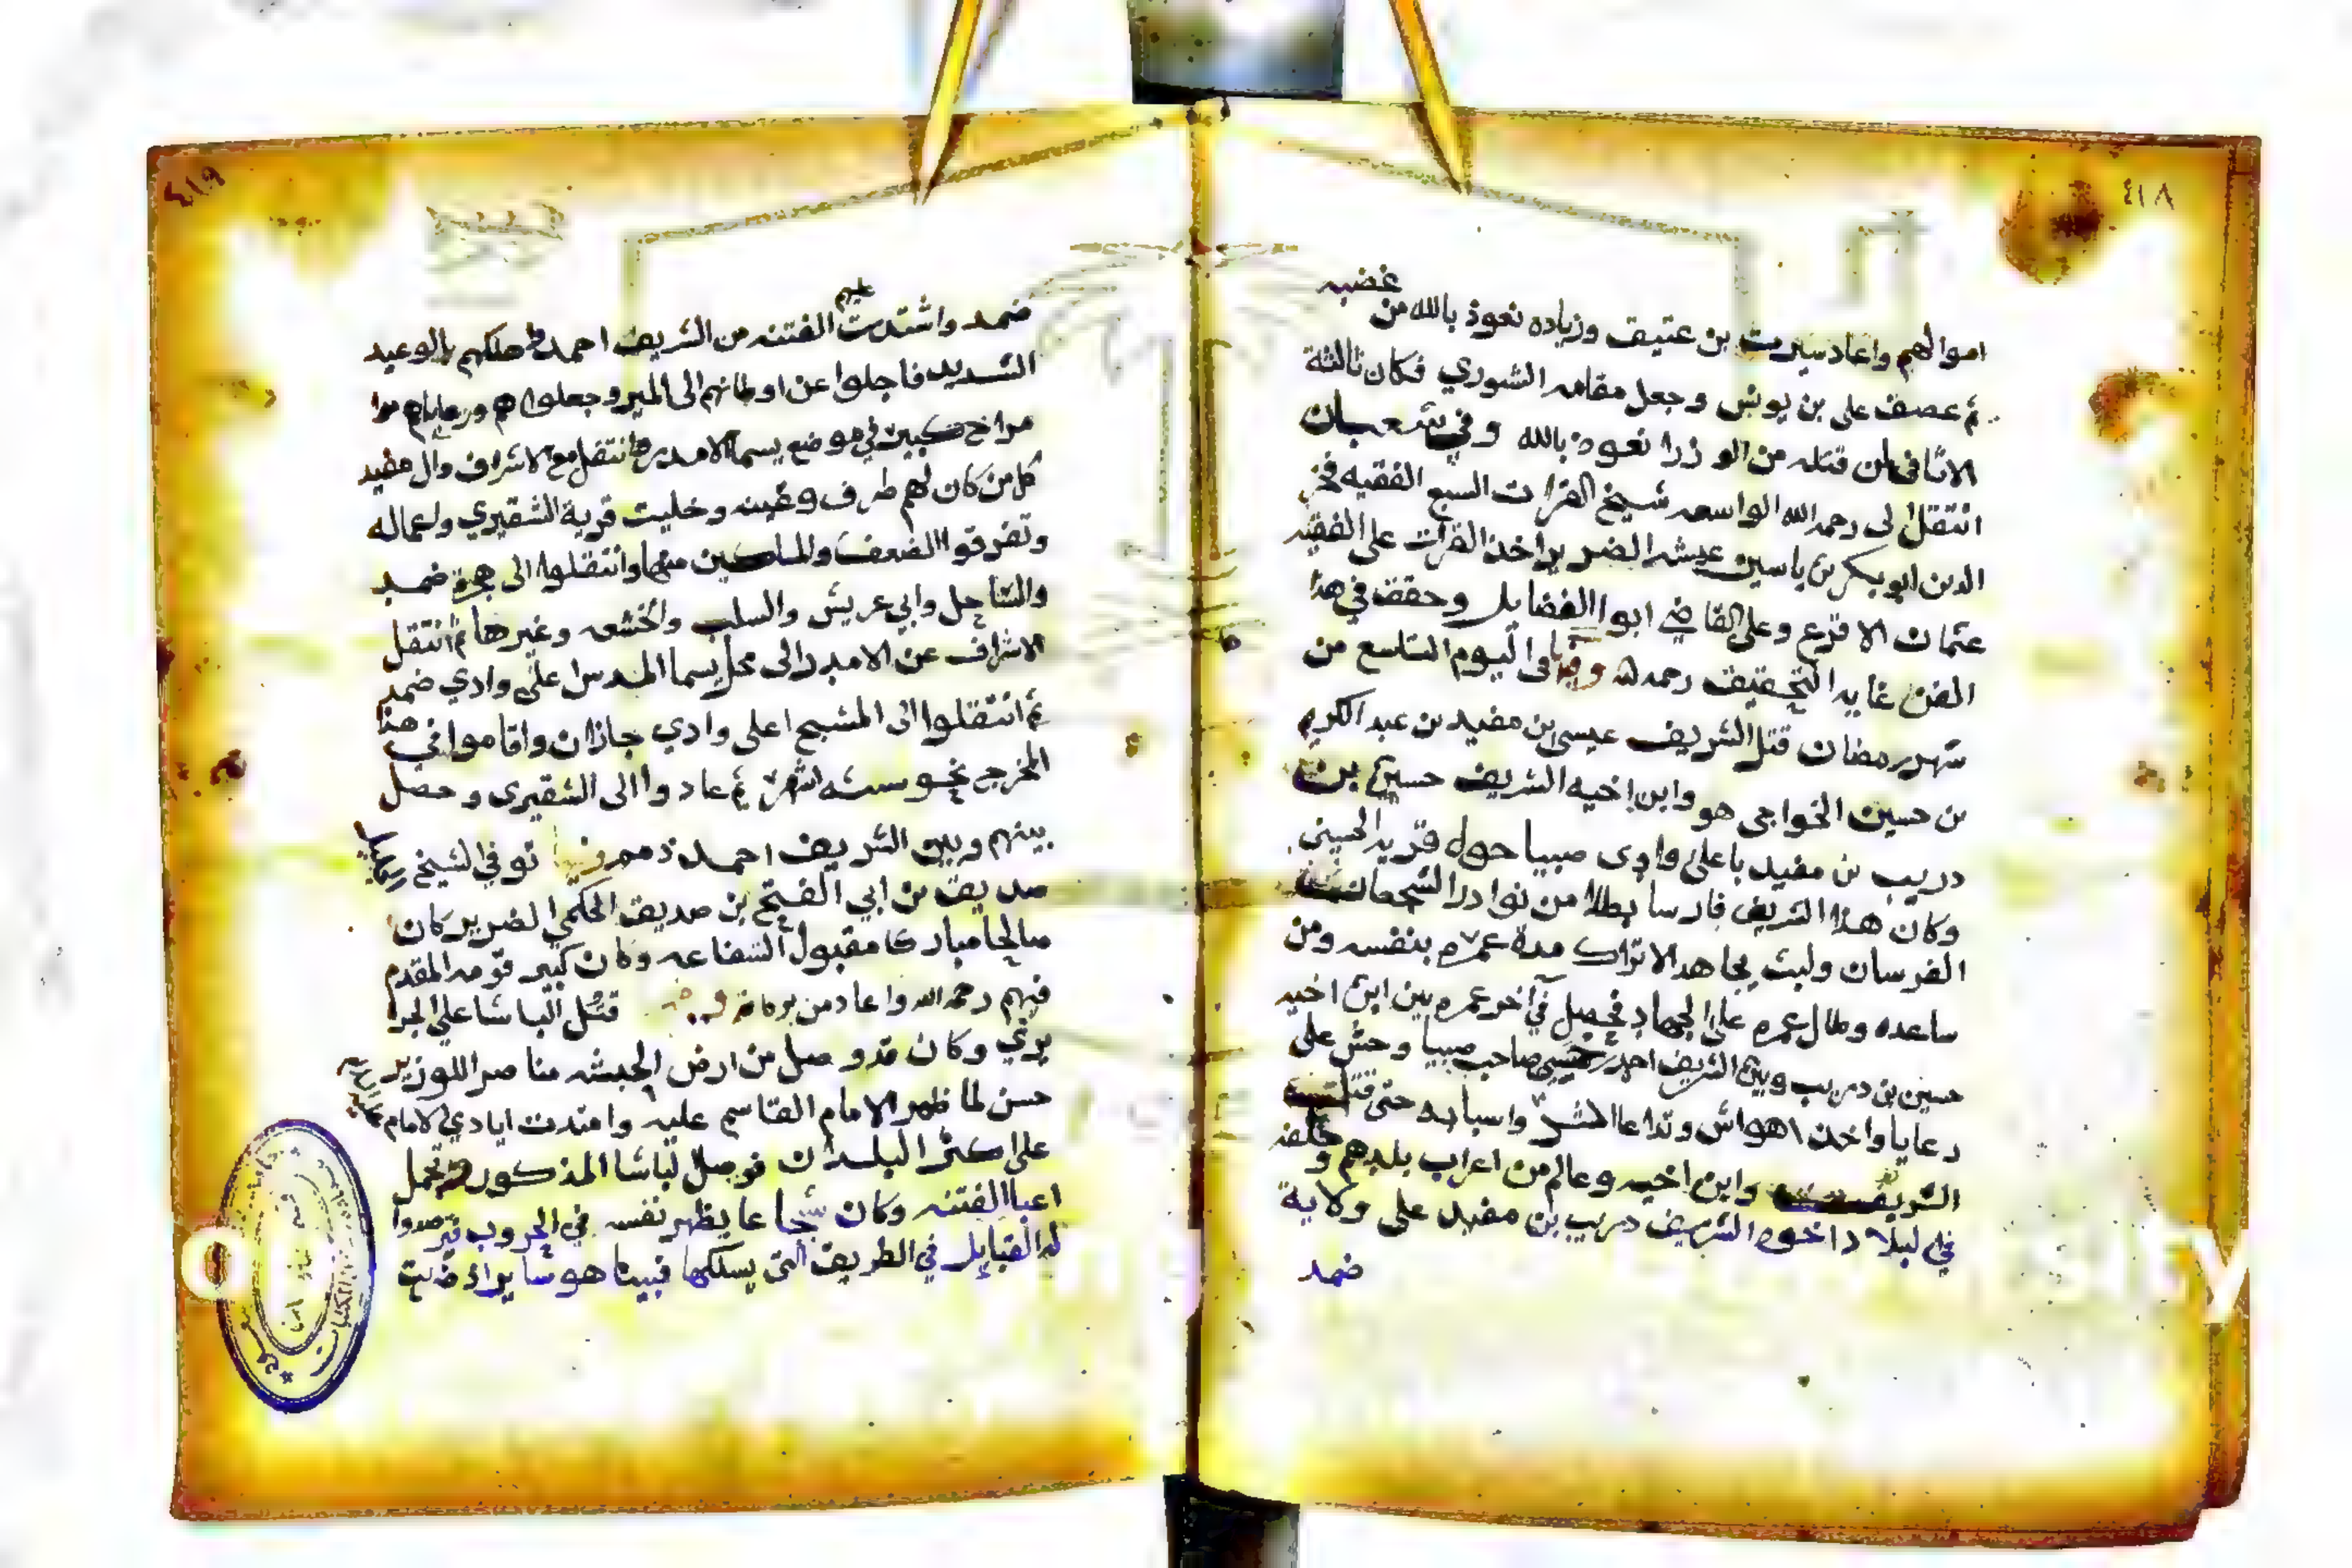 ٤١٨
اموالهم واعاد سيرت بن عتيف وزياده نعوذ بالله من غضبه
ثم عصف على بن يونس وجعل مقامه الشوري فكان ثالثة
الاثافي لمن قتله من الوزرا نعوذ بالله وفي شعبان
انتقل الى رحمه الله الواسعه شيخ القرات السبع الفقيه فخر
الدين ابو بكر بن ياسين عيشه الضرير اخذ القرات على الفقيه
عثمان الاقرع وعلى القاضي ابو الفضايل وحقق في هذا
الفن غايه التحقيق رحمه الله وفي اليوم التاسع من
شهر رمضان قتل الشريف عيسى بن مفيد بن عبد الكريم
بن حسين الخواجي هو وابن اخيه الشريف حسين بن
دريب بن مفيد باعلى وادى صبيا حول قريه الحسيني
وكان هذا الشريف فارسا بطلا من نوادر الشجعان
الفرسان ولبث يجاهد الاتراك مدة عمره بنفسه ومن
ساعده وطال عمره على الجهاد فحصل في آخر عمره بين ابن اخيه
حسين بن دريب وبين الشريف احمد صاحب صبيا وحش على
رعايا واخذ اهواش وتداعا الشر واسبابه حتى قتل
الشريف وابن اخيه وعالم من اعراب بلدهم وخلفه
في البلاد اخوه الشريف دريب بن مفيد على ولاية
ضمد
٤١٩
ضمد واشتدت عليهم الفتنه من الشريف احمد بالوعيد
الشديد فاجلوا عن اوطانهم الى المير وجعلوا هم ورعاياهم
في موضع يسما الامدر وانتقل مع الاشراف وال مفيد
كل من كان لهم طرف وخليت قرية الشقيري واعماله
وتفرقوا الضعف والمساكين منها وانتقلوا الى هجرة ضمد
والساحل وابي عريش والسلب والخشعه وغيرها ثم انتقل
الاشراف عن الامدر الى محل يسما المدس اعلى وادي ضمد
ثم انتقلوا الى المشبح اعلى وادي جازان واقاموا في هذا
المخرج نحو سته اشهر ثم عادوا الى الشقيرى وحصل
بينهم وبين الشريف احمد وفيها توفي الشيخ
صديق بن ابي الفتح بن صديق الحكمي الضرير كان
صالحا مباركا مقبول الشفاعه وكان كبير قومه المقدم
فيهم رحمه الله واعاد من بركاته قتل الباشا علي الجزا
يري وكان قد وصل من ارض الحبشه مناصرا للوزير
حسن لما ظهر الامام القاسم عليه وامتدت ايادي الامام
على اكثر البلدان فوصل الباشا المذكور وتحمل
اعبا الفتنه وكان شجاعا يظهر نفسه في الحروب فترصدوا
له القبايل في الطريق التى يسلكها فبينا هو سايرا